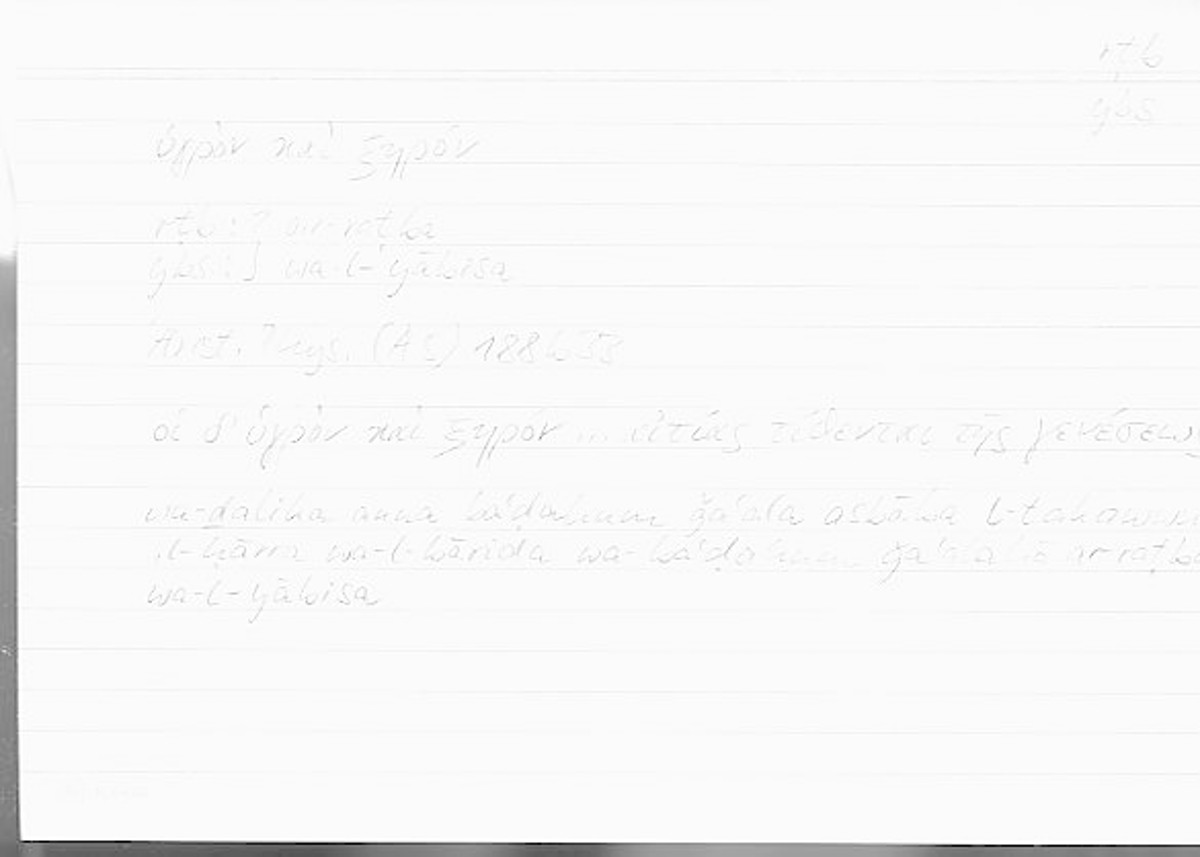 rṭb
ybs
ὑγρὸν καὶ ξηρόν
rṭb: ] ar-raṭba
ybs: ] wa-l-yābisa
Arist. Phys. (AS) 188b33
οἱ δ' ὑγρὸν καὶ ξηρόν ... αἰτίας τίθενται τῆς γενέσεως
wa-ḏalika anna baʿḍahum ǧaʿala asbāba l-takawwun
l-ḥārra wa-l-bārida wa-baʿḍahum ǧaʿalahā ar-raṭba
wa-l-yābisa